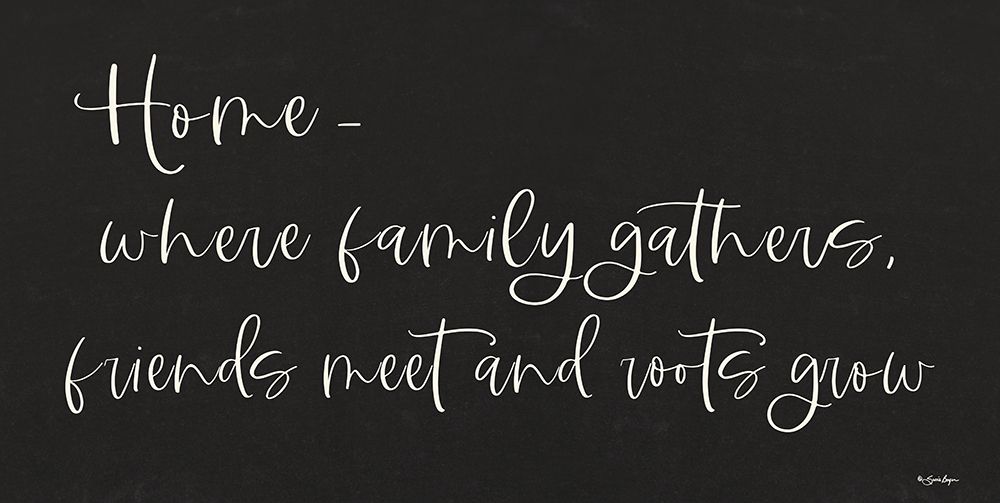 Home –
where family gathers,
friends meet and roots grow
©Susie Boyer